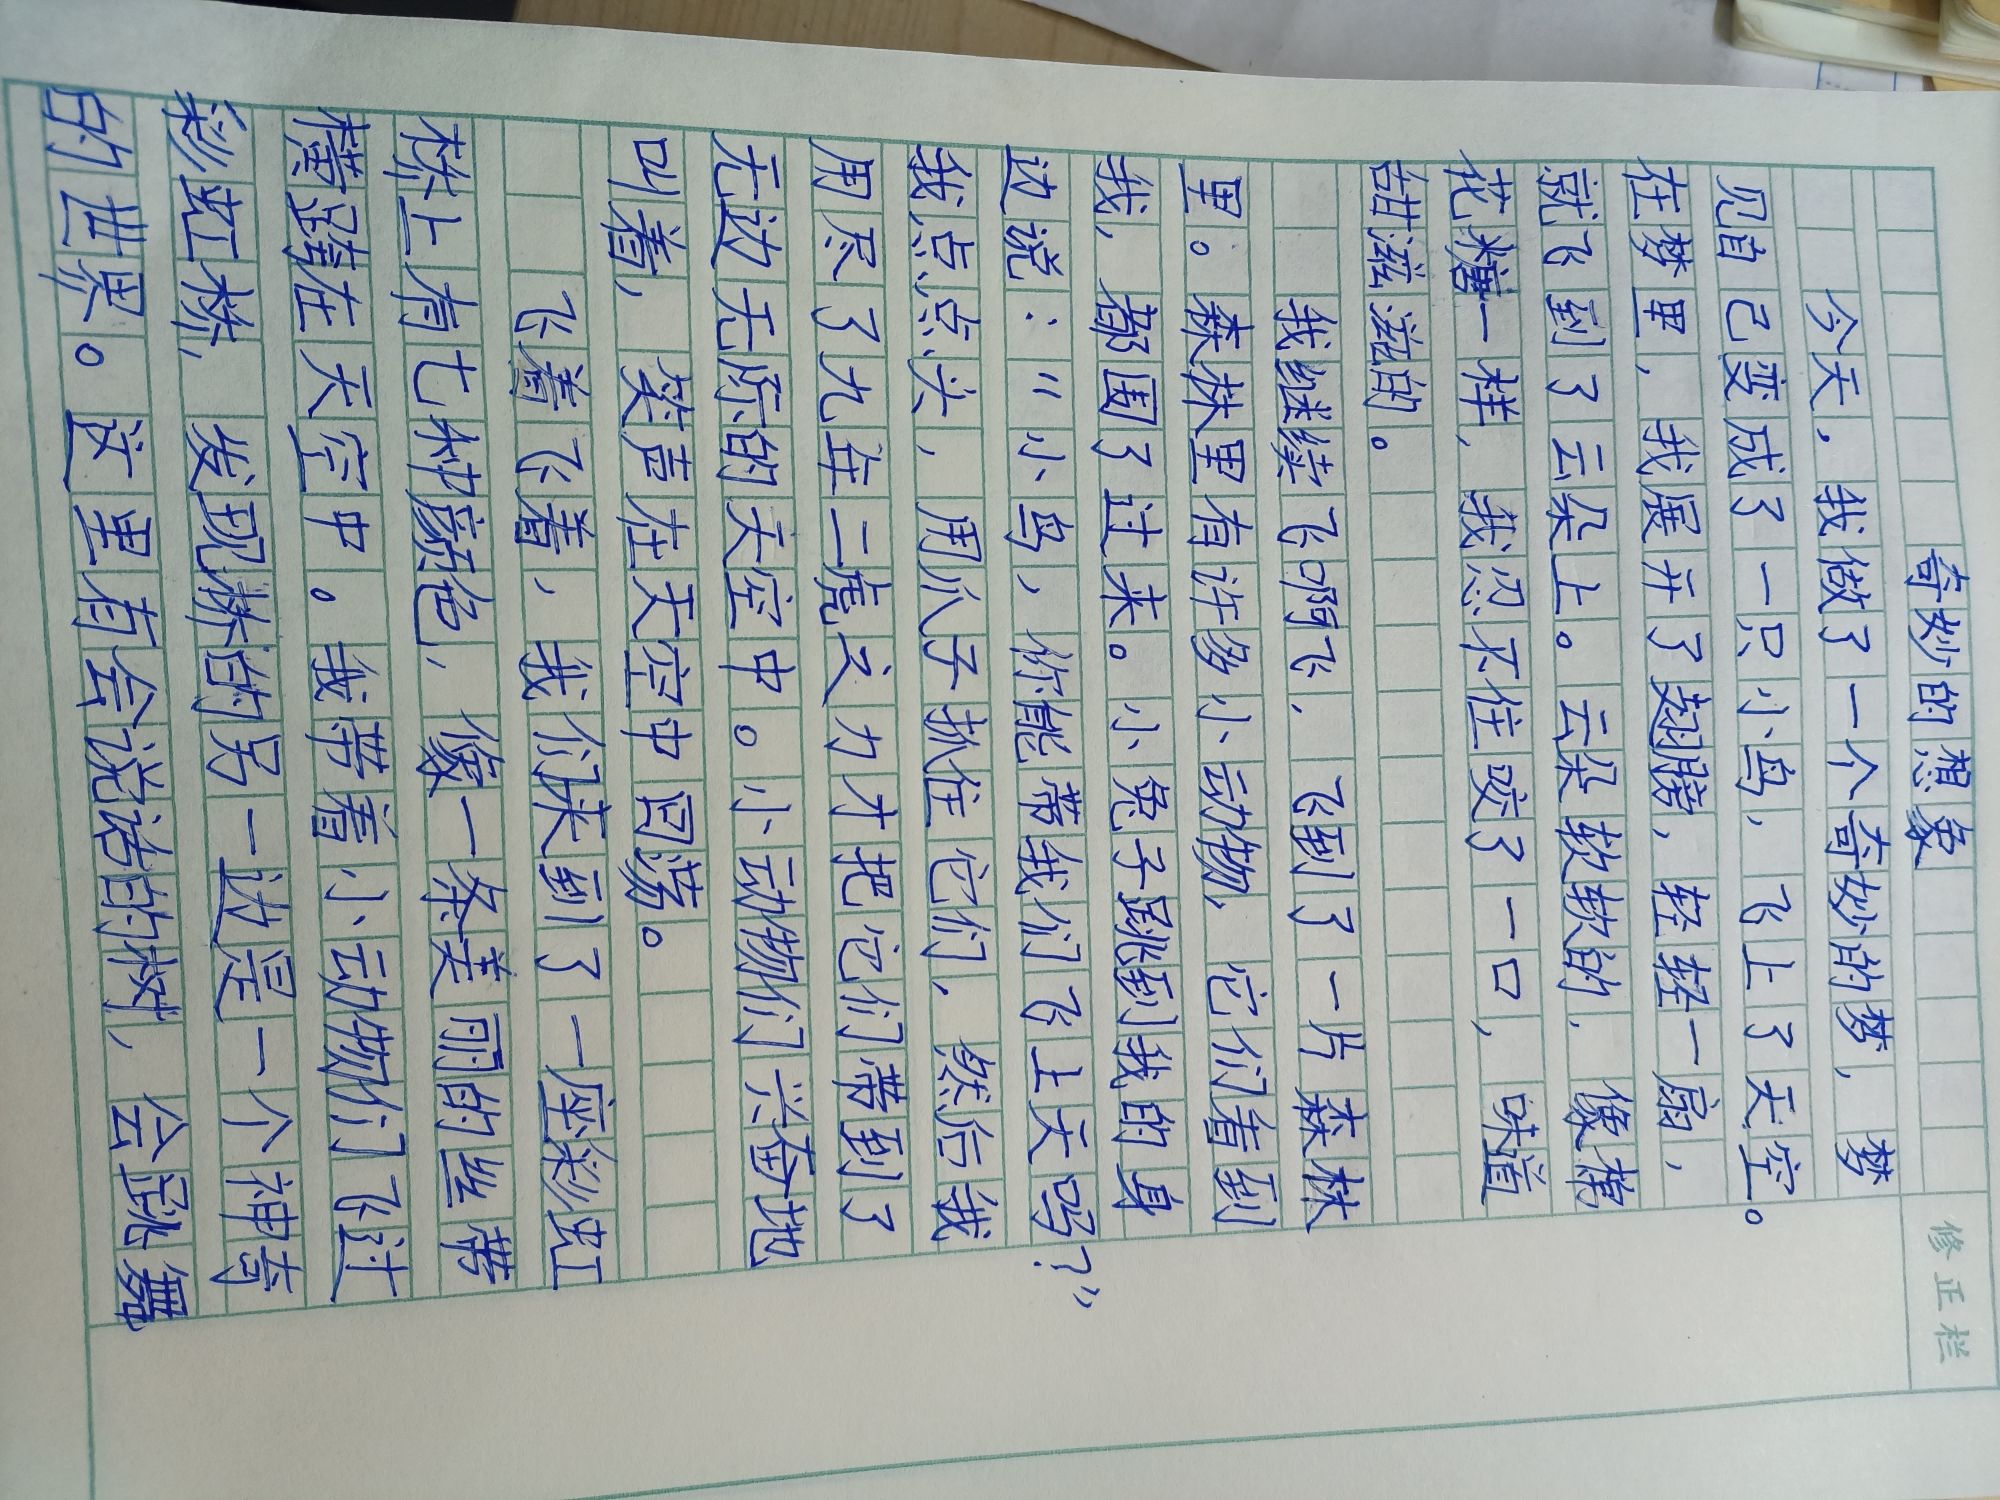 奇妙的想象
修正栏
今天，我做了一个奇妙的梦，梦
见自己变成了一只小鸟，飞上了天空。
在梦里，我展开了翅膀，轻轻一扇，
就飞到了云朵上。云朵软软的，像棉
花糖一样，我忍不住咬了一口，味道
甜滋滋的。
我继续飞啊飞，飞到了一片森林
里。森林里有许多小动物，它们看到
我，都围了过来。小兔子跳到我的身
边说：“小鸟，你能带我们飞上天吗？”
我点点头，用爪子抓住它们，然后我
用尽了九牛二虎之力才把它们带到了
无边无际的天空中。小动物们兴奋地
叫着，笑声在天空中回荡。
飞着飞着，我们来到了一座彩虹
桥上有七种颜色，像一条美丽的丝带
横跨在天空中。我带着小动物们飞过
彩虹桥，发现桥的另一边是一个神奇
的世界。这里有会说话的树，会跳舞